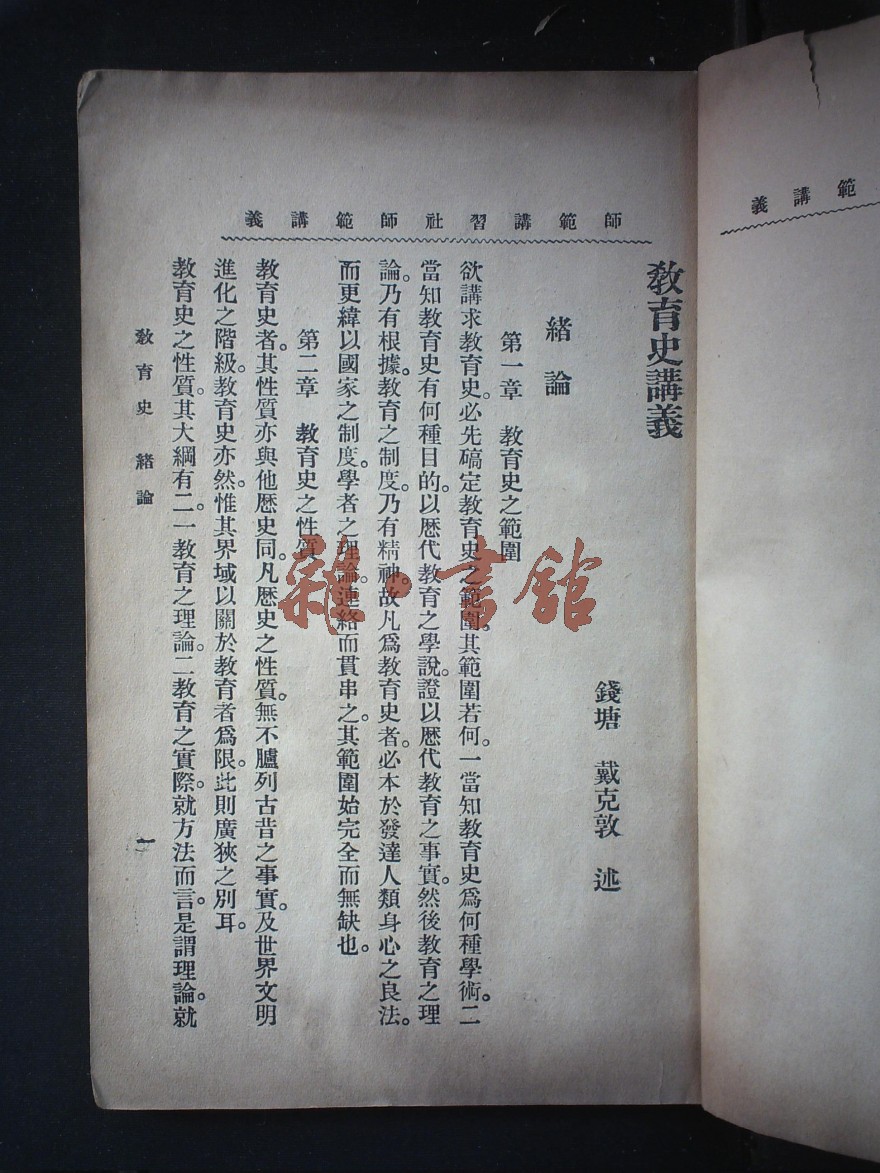 師範講習社師範講義
教育史講義
錢塘 戴克敦 述
緒論
第一章 教育史之範圍
欲講求教育史。必先碻定教育史之範圍。其範圍若何。一當知教育史爲何種學術。二
當知教育史有何種目的。以歷代教育之學說。證以歷代教育之事實。然後教育之理
論。乃有根據。教育之制度。乃有精神。故凡爲教育史者。必本於發達人類身心之良法。
而更緯以國家之制度。學者之理論。連絡而貫串之。其範圍始完全而無缺也。
第二章 教育史之性質
教育史者。其性質亦與他歷史同。凡歷史之性質。無不臚列古昔之事實。及世界文明
進化之階級。教育史亦然。惟其界域以關於教育者爲限。此則廣狹之別耳。
教育史之性質。其大綱有二。一教育之理論。二教育之實際。就方法而言。是謂理論。就
教育史 緒論
一
範講義
雜·書館